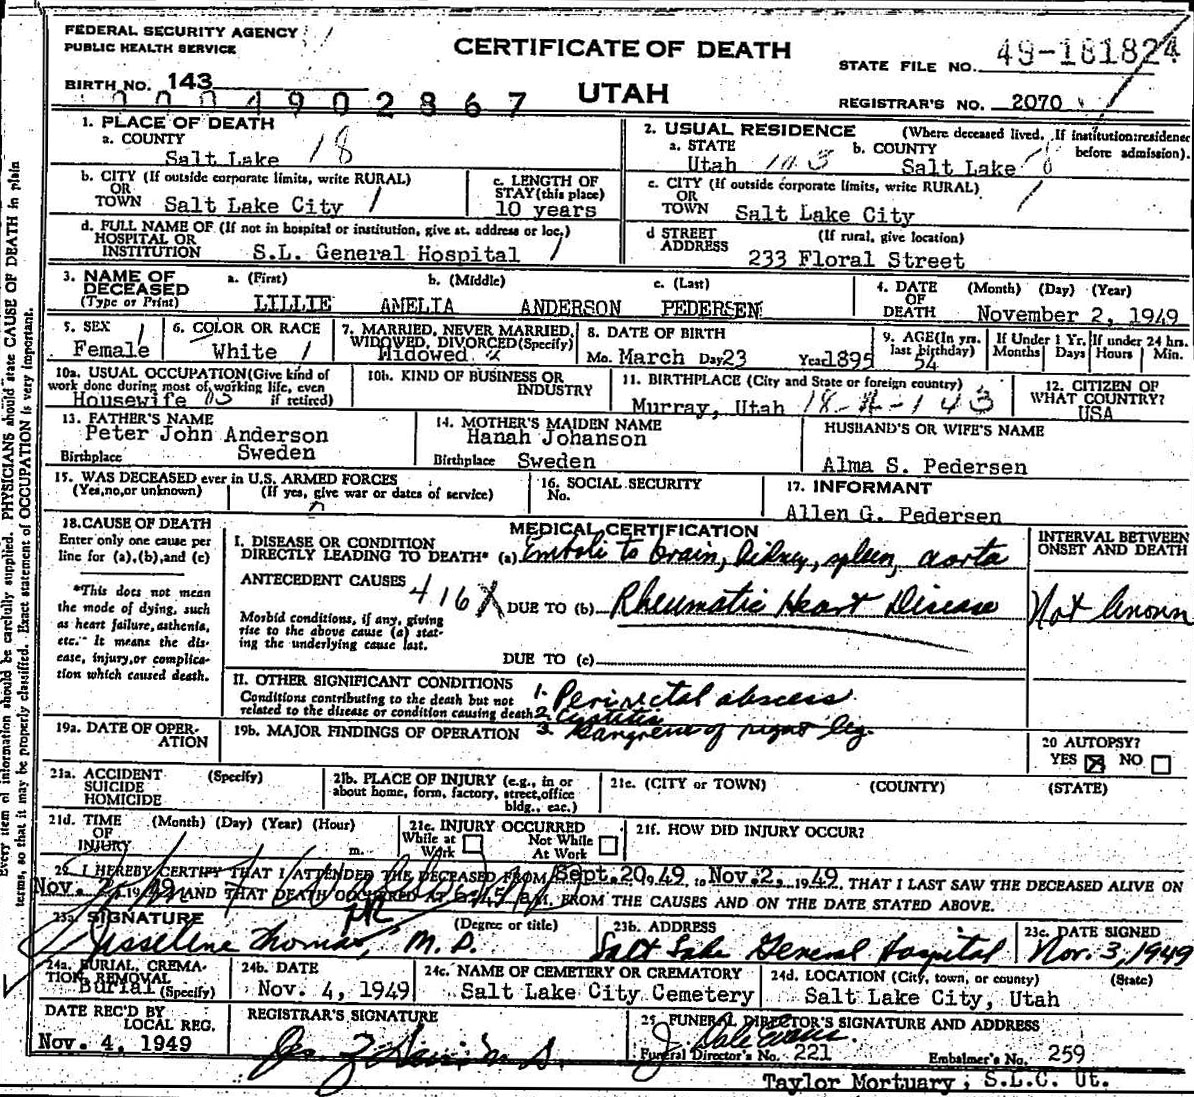 FEDERAL SECURITY AGENCY
PUBLIC HEALTH SERVICE
CERTIFICATE OF DEATH
UTAH
STATE FILE NO. 49-181824
BIRTH NO. 143
0004902867
REGISTRAR'S NO. 2070
1. PLACE OF DEATH
a. COUNTY
Salt Lake 18
2. USUAL RESIDENCE (Where deceased lived. If institution:residence before admission).
a. STATE b. COUNTY
Utah 143 Salt Lake 18
b. CITY (If outside corporate limits, write RURAL)
OR
TOWN Salt Lake City 1
c. LENGTH OF
STAY(this place)
10 years
c. CITY (If outside corporate limits, write RURAL)
OR
TOWN Salt Lake City 1
d. FULL NAME OF (If not in hospital or institution, give st. address or loc.)
HOSPITAL OR
INSTITUTION S.L. General Hospital 1
d STREET (If rural, give location)
ADDRESS 233 Floral Street
3. NAME OF DECEASED
(Type or Print)
a. (First) b. (Middle) c. (Last)
LILLIE AMELIA ANDERSON PEDERSEN
4. DATE OF DEATH (Month) (Day) (Year)
November 2, 1949
5. SEX 1
Female
6. COLOR OR RACE
White 1
7. MARRIED, NEVER MARRIED,
WIDOWED, DIVORCED(Specify)
Widowed 2
8. DATE OF BIRTH
Mo. March Day 23 Year 1895
9. AGE(In yrs. last birthday)
54
If Under 1 Yr. If under 24 hrs.
Months Days Hours Min.
10a. USUAL OCCUPATION(Give kind of
work done during most of working life, even
Housewife if retired)
10b. KIND OF BUSINESS OR
INDUSTRY
11. BIRTHPLACE (City and State or foreign country)
Murray, Utah
12. CITIZEN OF
WHAT COUNTRY?
USA
13. FATHER'S NAME
Peter John Anderson
Birthplace Sweden
14. MOTHER'S MAIDEN NAME
Hanah Johanson
Birthplace Sweden
HUSBAND'S OR WIFE'S NAME
Alma S. Pedersen
15. WAS DECEASED ever in U.S. ARMED FORCES
(Yes,no,or unknown) (If yes, give war or dates of service)
16. SOCIAL SECURITY
No.
17. INFORMANT
Allen G. Pedersen
18.CAUSE OF DEATH
Enter only one cause per
line for (a),(b),and (c)
*This does not mean
the mode of dying, such
as heart failure,asthenia,
etc." It means the dis-
ease, injury,or complica-
tion which caused death.
MEDICAL CERTIFICATION
I. DISEASE OR CONDITION
DIRECTLY LEADING TO DEATH* (a) Emboli to brain, kidney, spleen, aorta
ANTECEDENT CAUSES 416X
DUE TO (b) Rheumatic Heart Disease
Morbid conditions, if any, giving
rise to the above cause (a) stat-
ing the underlying cause last.
DUE TO (c)
INTERVAL BETWEEN
ONSET AND DEATH
Not known
II. OTHER SIGNIFICANT CONDITIONS
Conditions contributing to the death but not
related to the disease or condition causing death
1. Perirectal abscess
2. Cystitis
3. Gangrene of right leg.
19a. DATE OF OPER-
ATION
19b. MAJOR FINDINGS OF OPERATION
20 AUTOPSY?
YES NO
21a. ACCIDENT (Specify)
SUICIDE
HOMICIDE
21b. PLACE OF INJURY (e.g., in or
about home, form, factory, street,office
bldg., eac.)
21c. (CITY or TOWN) (COUNTY) (STATE)
21d. TIME (Month) (Day) (Year) (Hour)
OF
INJURY m.
21e. INJURY OCCURRED
While at Work Not While At Work
21f. HOW DID INJURY OCCUR?
22. I HEREBY CERTIFY THAT I ATTENDED THE DECEASED FROM Sept.20,1949, to Nov.2, 1949, THAT I LAST SAW THE DECEASED ALIVE ON
Nov. 2, 1949 AND THAT DEATH OCCURRED AT FROM THE CAUSES AND ON THE DATE STATED ABOVE.
23a. SIGNATURE (Degree or title)
Thomas, M.D.
23b. ADDRESS
Salt Lake General Hospital
23c. DATE SIGNED
Nov. 3, 1949
24a. BURIAL, CREMA-
TION, REMOVAL
Burial (Specify)
24b. DATE
Nov. 4, 1949
24c. NAME OF CEMETERY OR CREMATORY
Salt Lake City Cemetery
24d. LOCATION (City, town, or county) (State)
Salt Lake City, Utah
DATE REC'D BY
LOCAL REG.
Nov. 4, 1949
REGISTRAR'S SIGNATURE
25 FUNERAL DIRECTOR'S SIGNATURE AND ADDRESS
J Dale Evans.
Funeral Director's No. 221 Embalmer's No. 259
Taylor Mortuary; S.L.C. Ut.
Every item of information should be carefully supplied. PHYSICIANS should state CAUSE OF DEATH in plain
terms, so that it may be properly classified. Exact statement of OCCUPATION is very important.